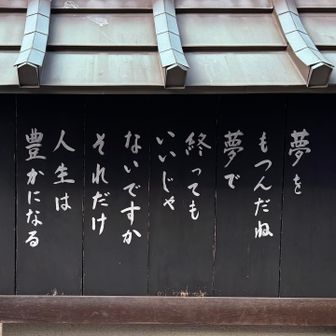 夢を
もつんだね
夢で
終っても
いいじゃ
ないですか
それだけ
人生は
豊かになる